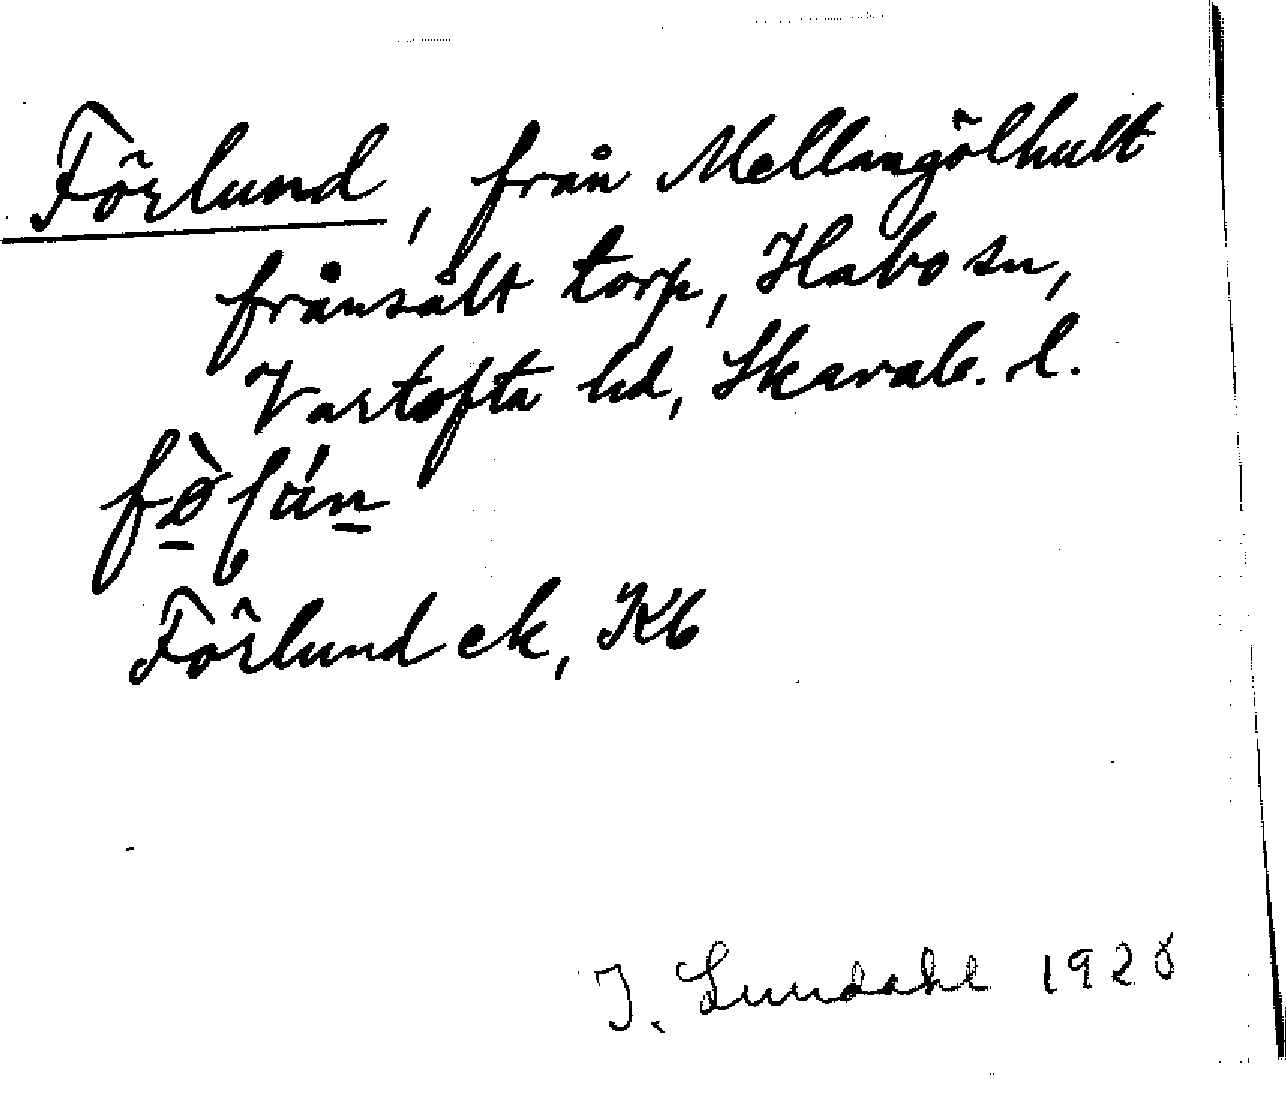 Förlund, från Mellangölhult
frånsålt torp, Habo sn,
Vartofta hd, Skarab. l.
Förlund ek, Kb
J. Lundahl 1928